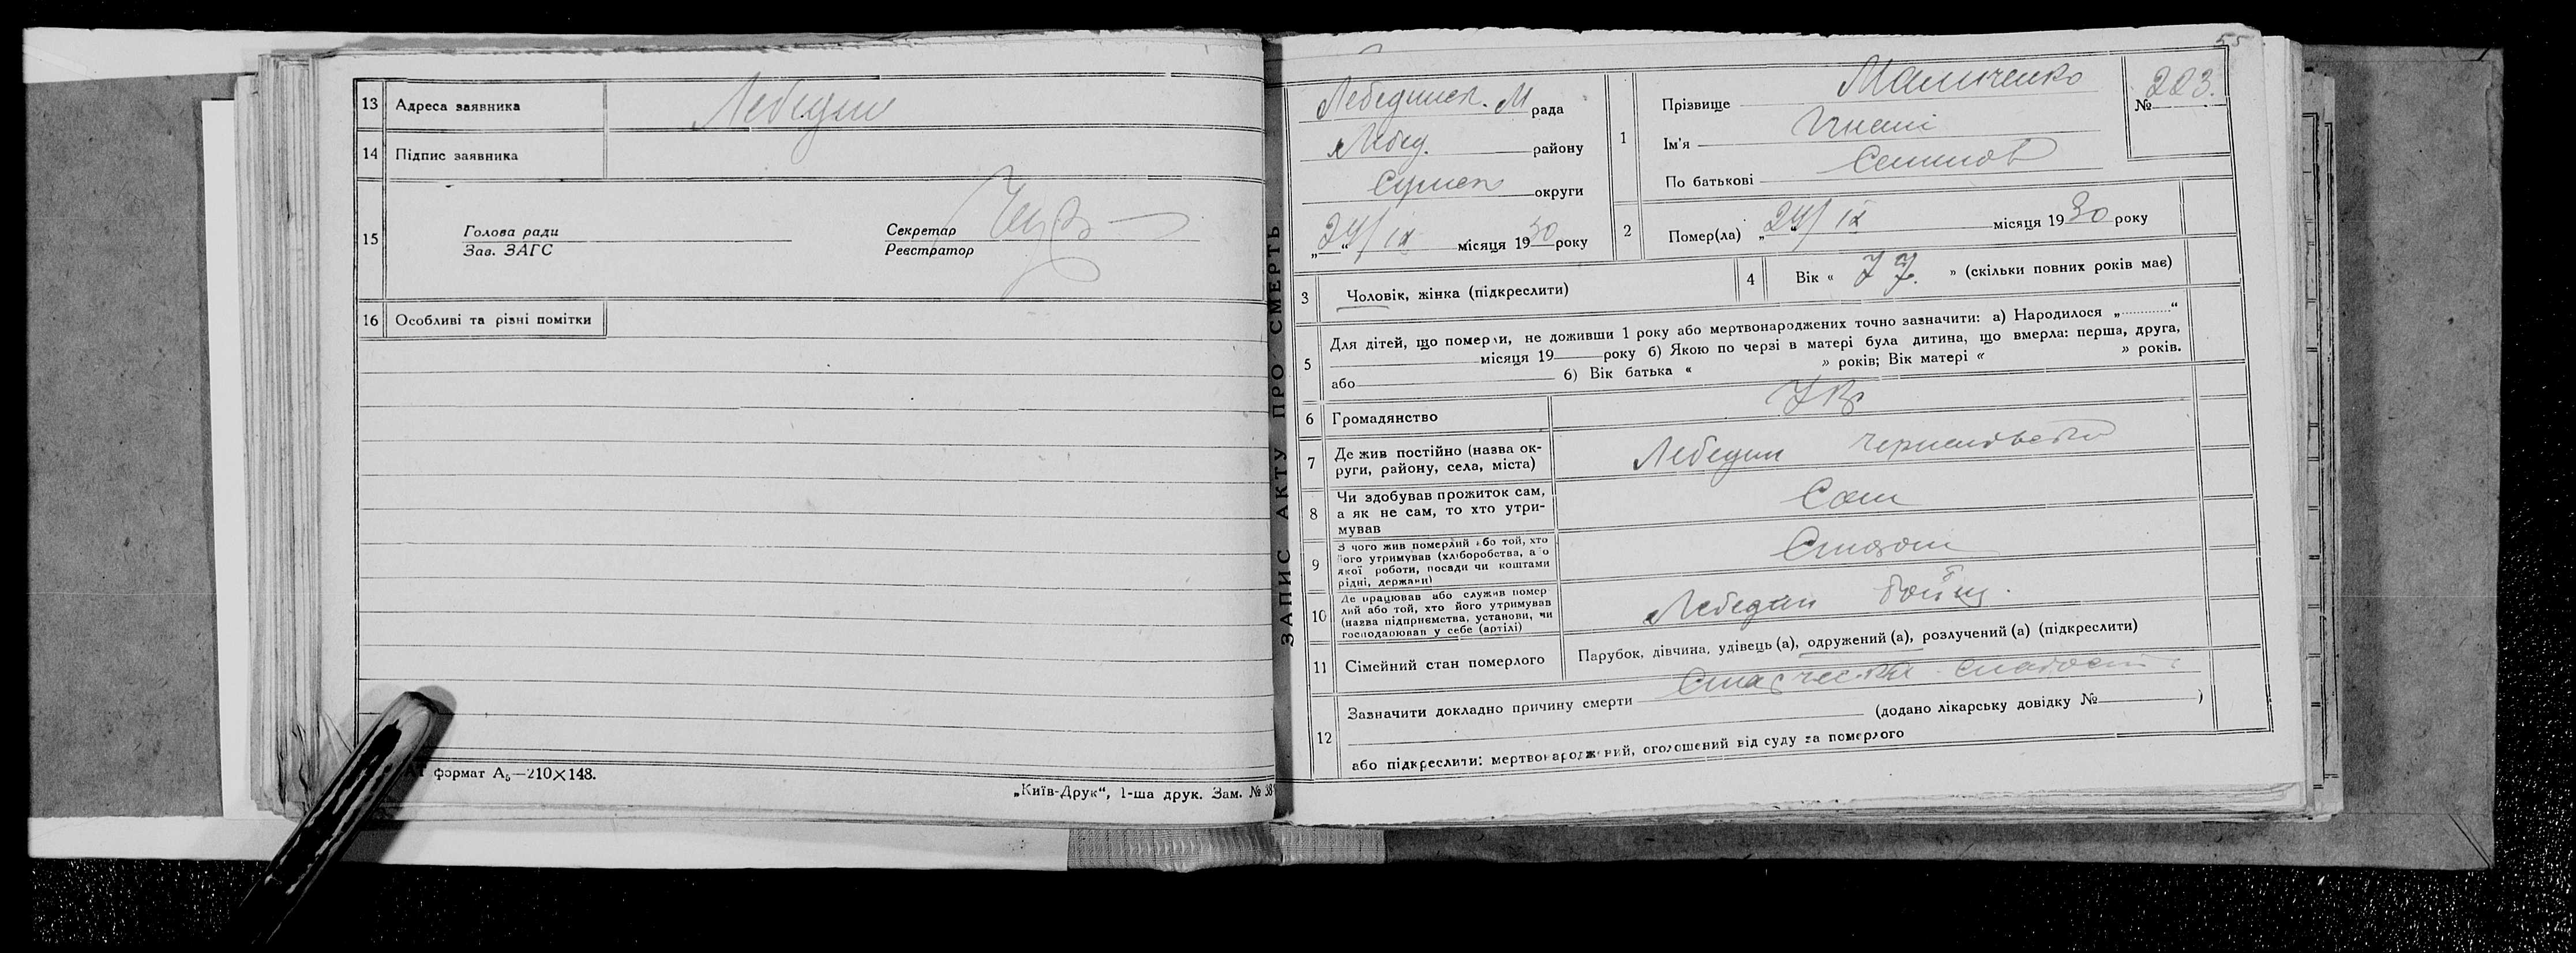 13 Адреса заявника Лебедин
14 Підпис заявника
15
Голова ради
Зав. ЗАГС
Секретар
Реєстратор
16 Особливі та різні помітки
формат А₅—210×148.
„Київ-Друк“, 1-ша друк. Зам. № 38
ЗАПИС АКТУ ПРО СМЕРТЬ
55
Лебединск. М рада
Лебед. району
Сумск округи
„24/IX“ місяця 1930 року
1
Прізвище
Ім'я
По батькові Семенов
№ 223.
2 Помер(ла) „24/IX місяця 1930 року
3 Чоловік, жінка (підкреслити)
4 Вік « 77. » (скільки повних років має)
5 Для дітей, що померли, не доживши 1 року або мертвонароджених точно зазначити: а) Народилося „............“
місяця 19 року б) Якою по черзі в матері була дитина, що вмерла: перша, друга,
або 6) Вік батька « » років; Вік матері « » років.
6 Громадянство Укр
7 Де жив постійно (назва ок-
руги, району, села, міста) Лебедин
8 Чи здобував прожиток сам,
а як не сам, то хто утри-
мував Сам
9 З чого жив померлий або той, хто
його утримував (хліборобства, або
якої роботи, посади чи коштами
рідні, держави)
10 Де працював або служив помер
лий або той, хто його утримував
(назва підприємства, установи, чи
господарював у себе (артілі) Лебедин
11 Сімейний стан померлого Парубок, дівчина, удівець (а), одружений (а), розлучений (а) (підкреслити)
12 Зазначити докладно причину смерти Старческа слабость
(додано лікарську довідку № )
або підкреслити: мертвонароджений, оголошений від суду за померлого